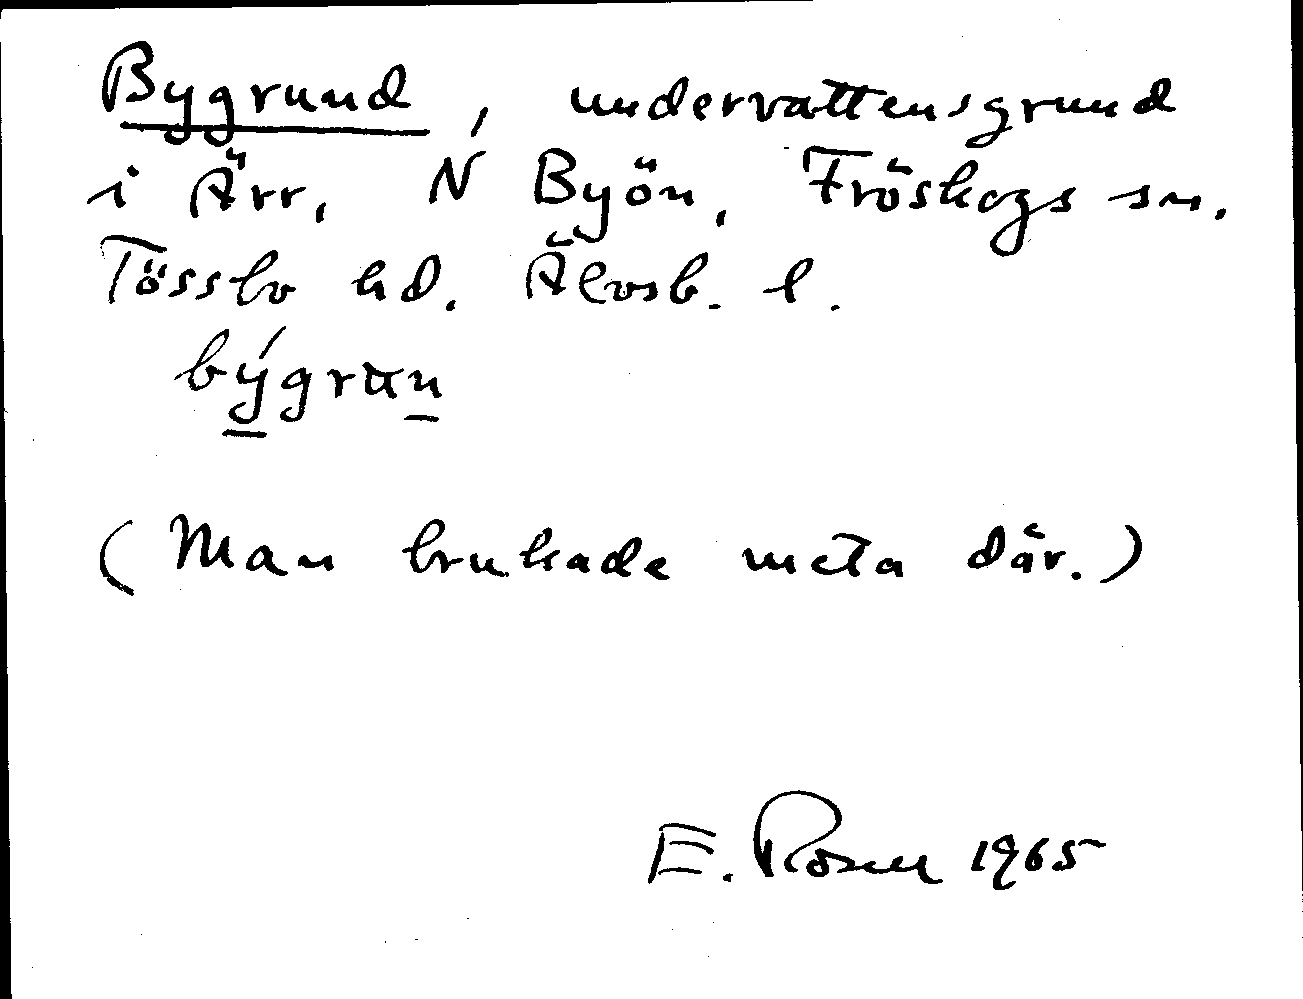 Bygrund, undervattensgrund
i Ärr, N Byön, Fröskogs sn.
Tössbo hd. Älvsb. l.
býgrun
(Man brukade meta där.)
E. Rosell 1965